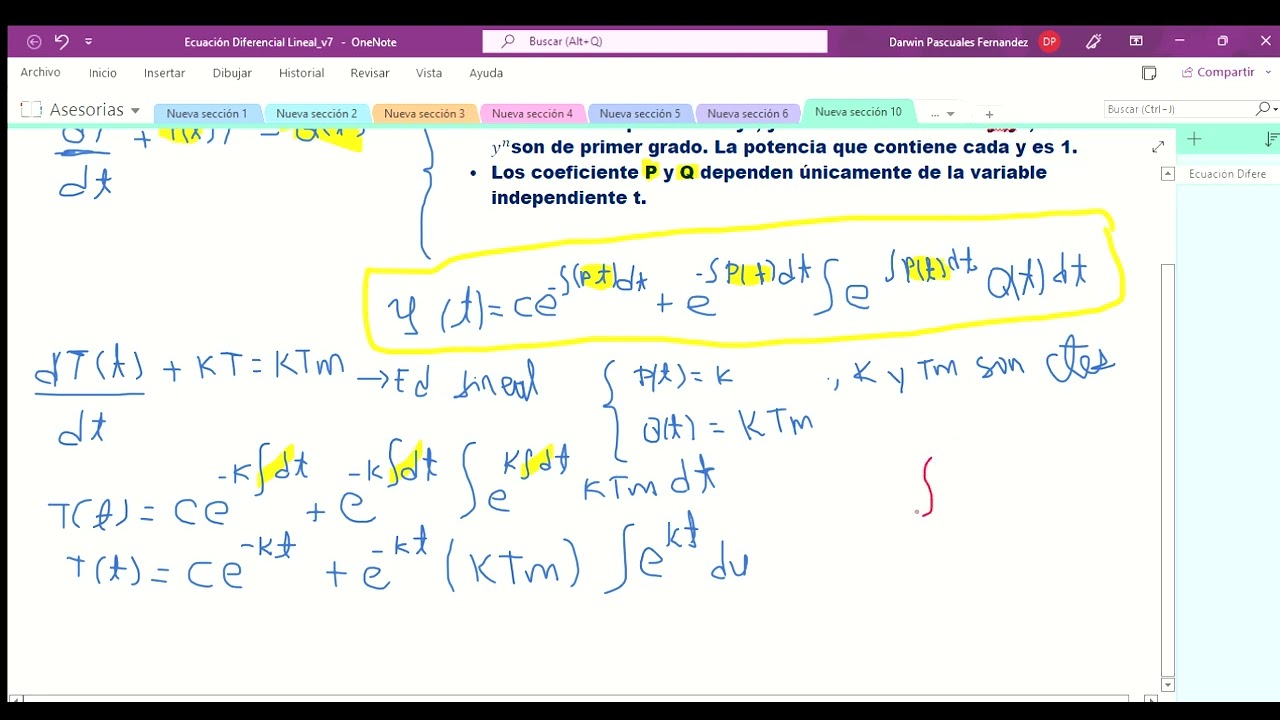 Ecuación Diferencial Lineal_v7 - OneNote
Buscar (Alt+Q)
Darwin Pascuales Fernandez
DP
Archivo Inicio Insertar Dibujar Historial Revisar Vista Ayuda
Compartir
Asesorias
Nueva sección 1
Nueva sección 2
Nueva sección 3
Nueva sección 4
Nueva sección 5
Nueva sección 6
Nueva sección 10
...
Buscar (Ctrl+J)
Ecuación Difere
dt
yⁿson de primer grado. La potencia que contiene cada y es 1.
• Los coeficiente P y Q dependen únicamente de la variable
independiente t.
y(t) = ce^{-∫(P t)dt} + e^{-∫P(t)dt} ∫e^{∫P(t)dt} Q(t)dt
dT(t)/dt + KT = KTm → Ed lineal { P(t) = K , K y Tm son ctes
Q(t) = KTm
T(t) = ce^{-K∫dt} + e^{-K∫dt} ∫e^{K∫dt} KTm dt
T(t) = ce^{-Kt} + e^{-Kt} (KTm) ∫e^{Kt} du
∫